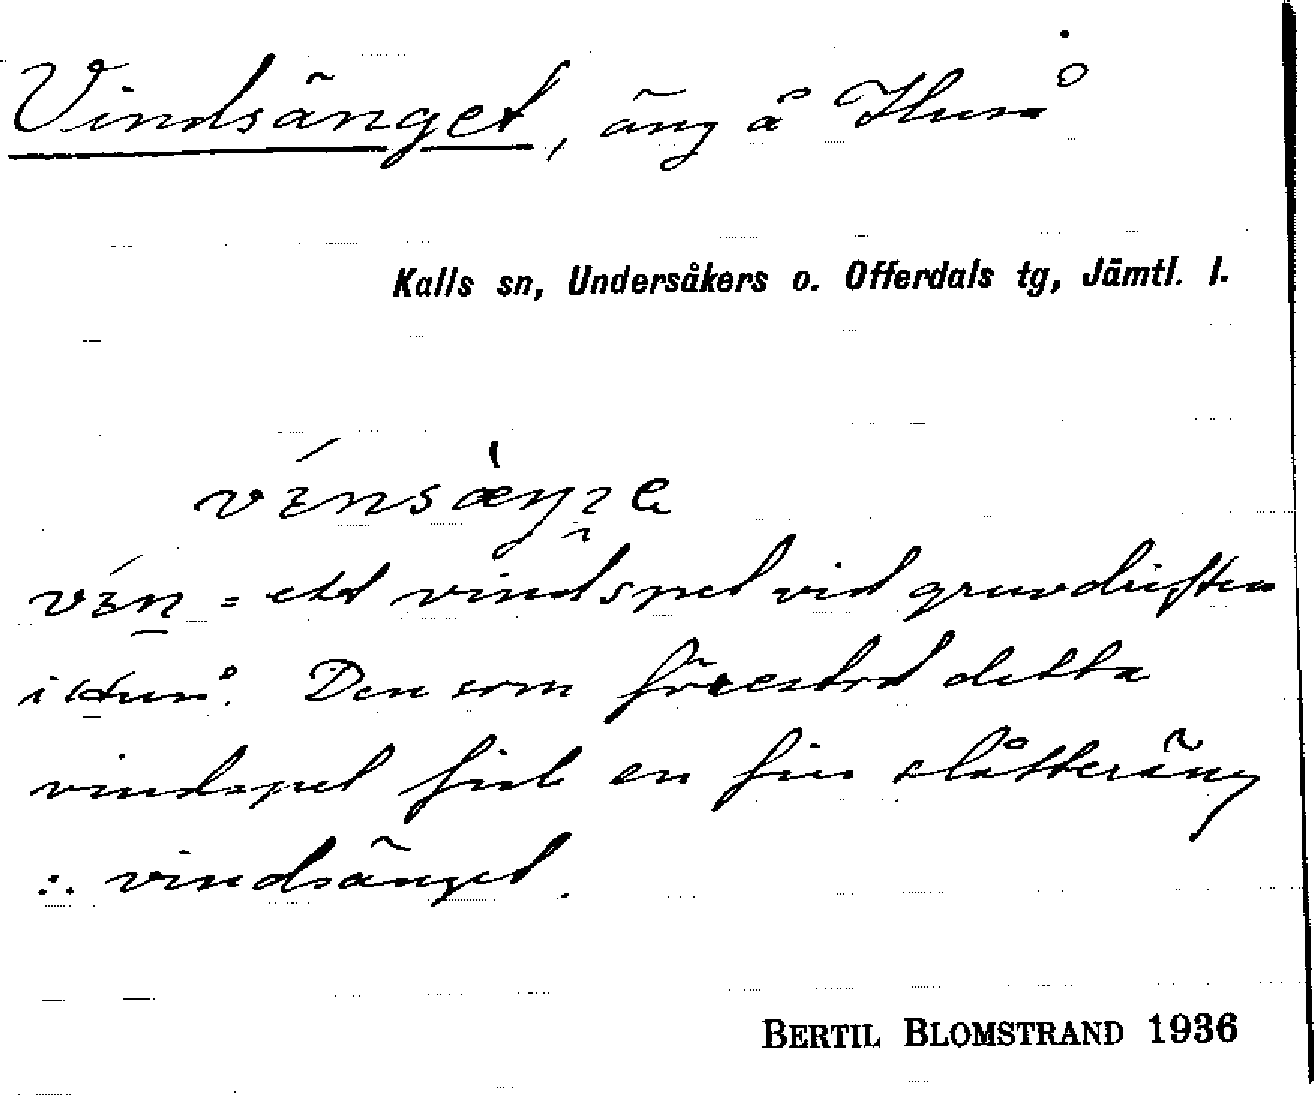 Vindsänget, äng å Huså
Kalls sn, Undersåkers o. Offerdals tg, Jämtl. l.
= ett vindspel vid gruvdriften
i Huså. Den som förestod detta
vindspel fick en fin slåtteräng
∴ vindsänget.
BERTIL BLOMSTRAND 1936